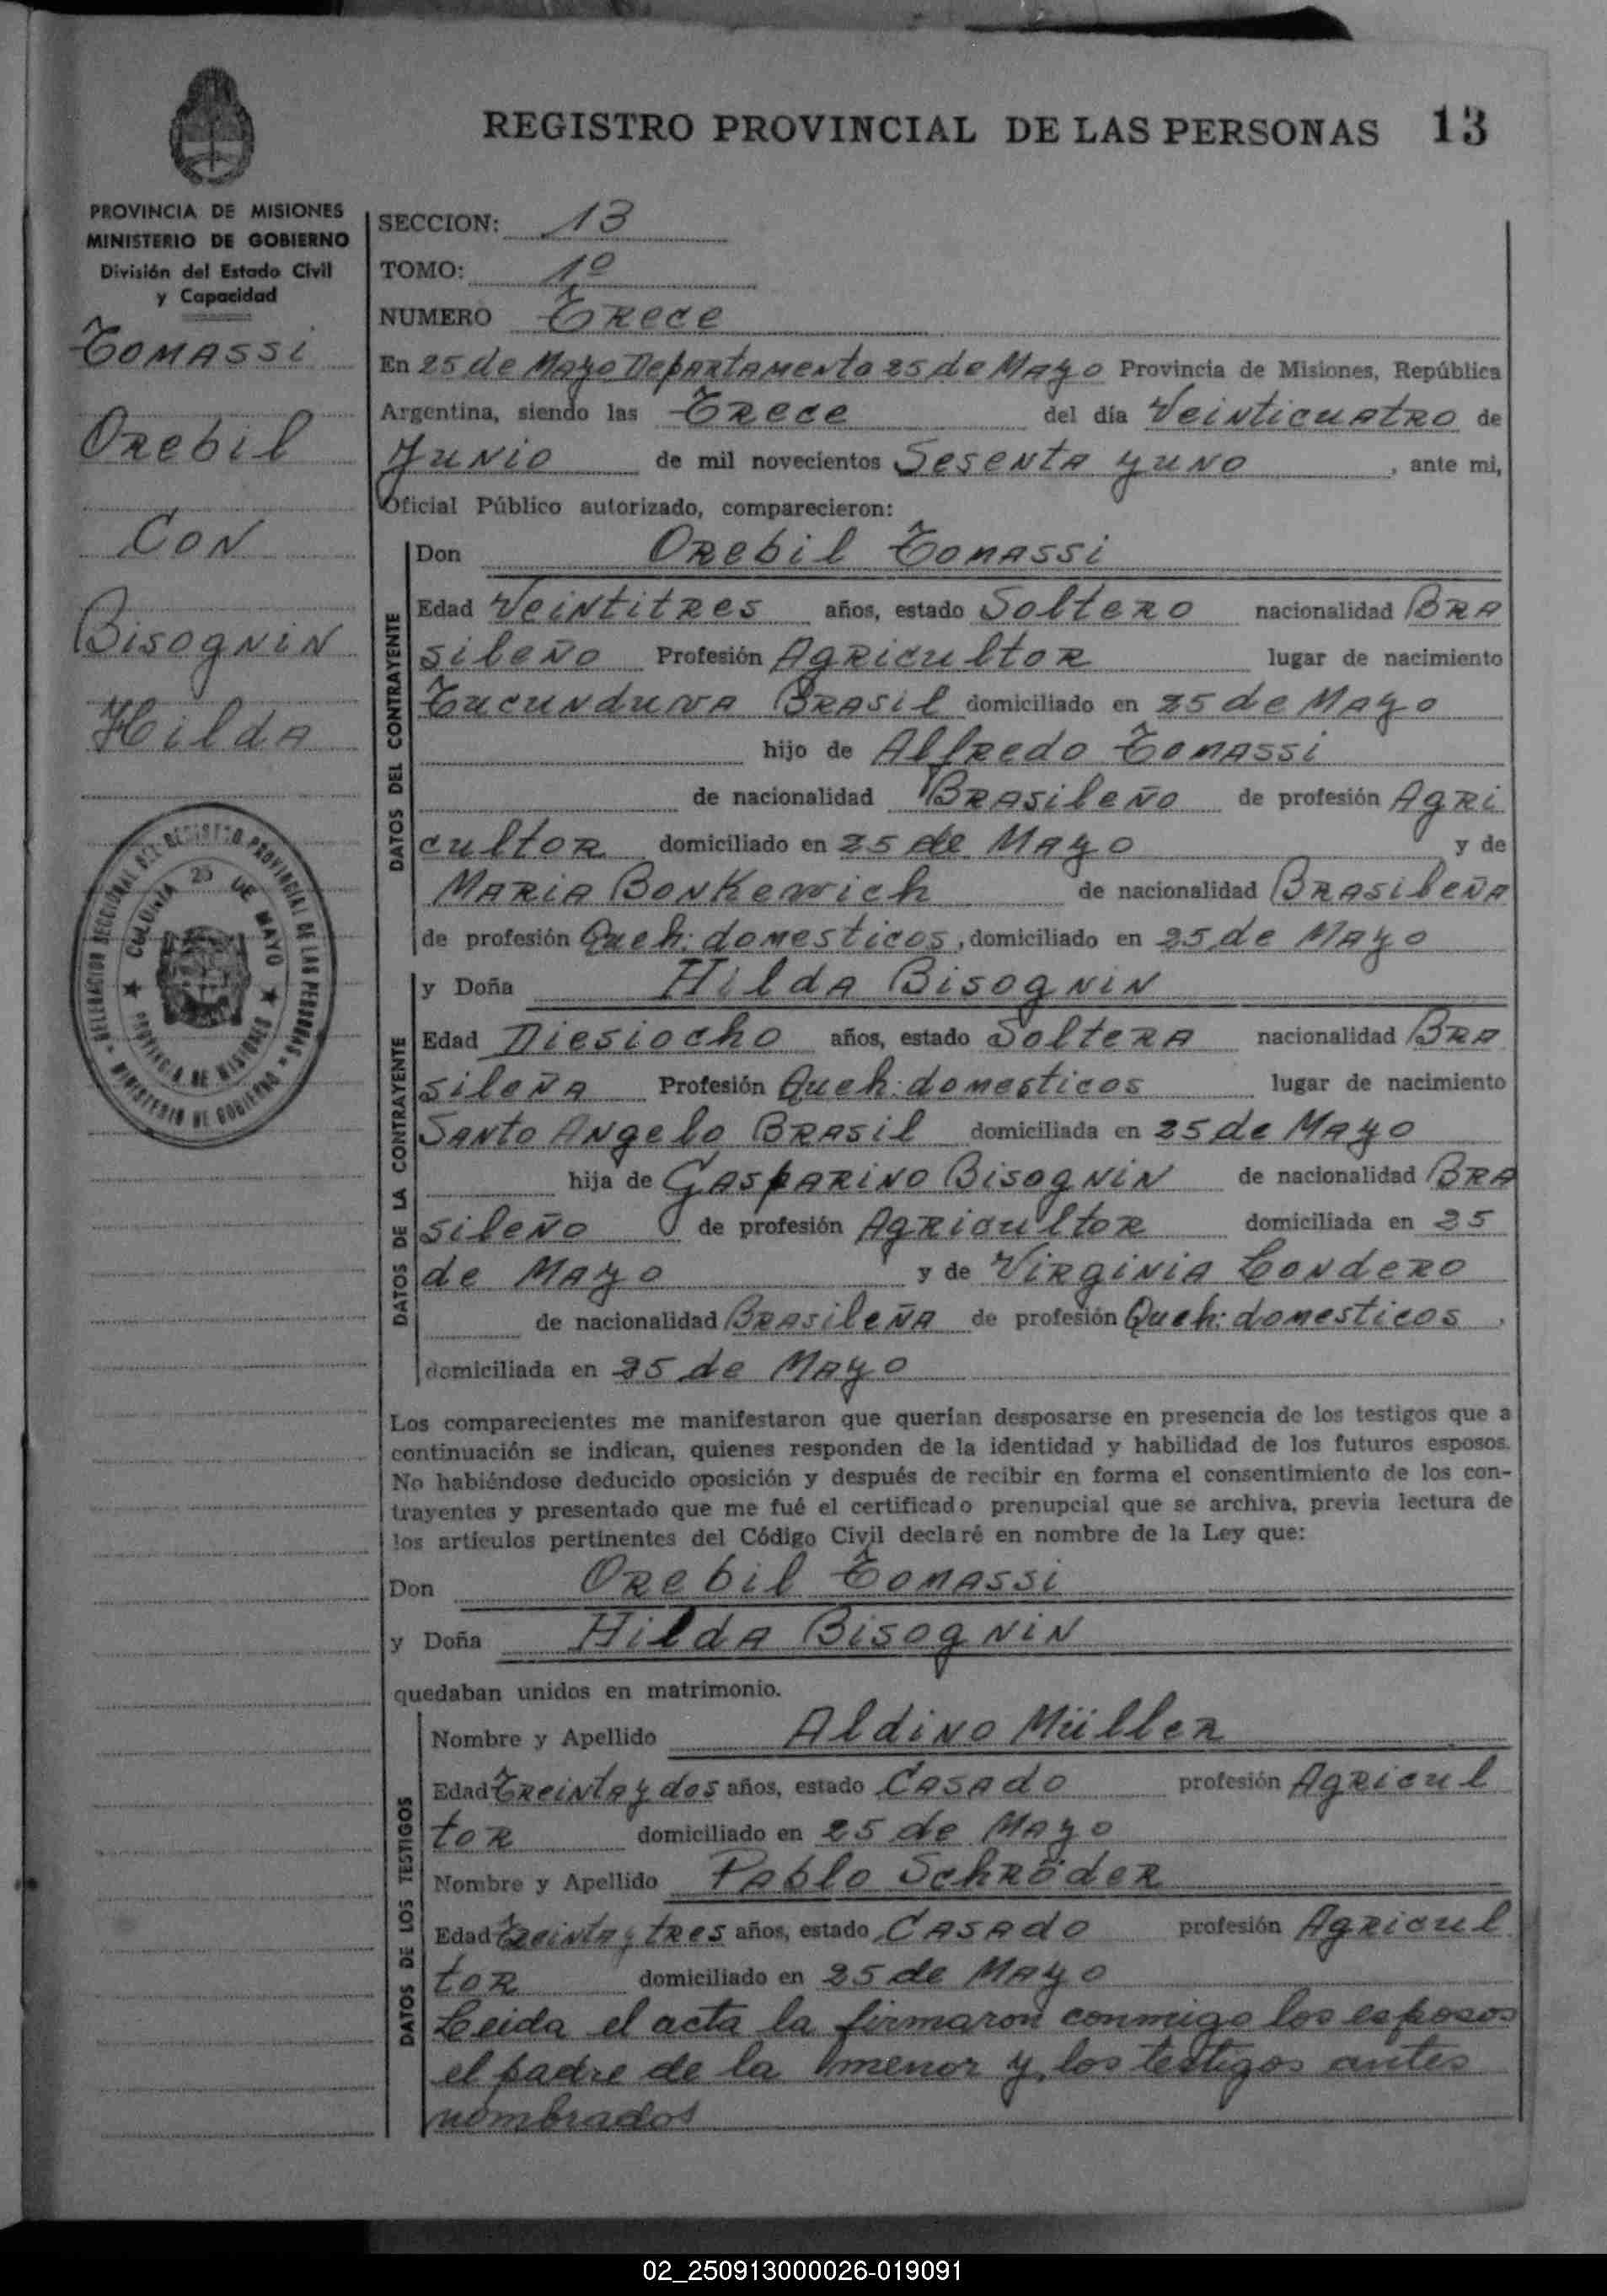 REGISTRO PROVINCIAL DE LAS PERSONAS 13
PROVINCIA DE MISIONES
MINISTERIO DE GOBIERNO
División del Estado Civil
y Capacidad
Tomassi
Orebil
Con
Bisognin
Hilda
DELEGACION SECCIONAL DEL REGISTRO PROVINCIAL DE LAS PERSONAS
MINISTERIO DE GOBIERNO
COLONIA 25 DE MAYO
PROVINCIA DE MISIONES
SECCION: 13
TOMO: 1º
NUMERO Trece
En 25 de Mayo Departamento 25 de Mayo Provincia de Misiones, República
Argentina, siendo las Trece del día Veinticuatro de
Junio de mil novecientos Sesenta y uno, ante mi,
Oficial Público autorizado, comparecieron:
DATOS DEL CONTRAYENTE
Don Orebil Tomassi
Edad Veintitres años, estado Soltero nacionalidad Bra
sileño Profesión Agricultor lugar de nacimiento
Tucunduva Brasil domiciliado en 25 de Mayo
hijo de Alfredo Tomassi
de nacionalidad Brasileño de profesión Agri
cultor domiciliado en 25 de Mayo y de
Maria Bonkewich de nacionalidad Brasileña
de profesión Queh. domesticos, domiciliado en 25 de Mayo
DATOS DE LA CONTRAYENTE
y Doña Hilda Bisognin
Edad Diesiocho años, estado Soltera nacionalidad Bra
sileña Profesión Queh: domesticos lugar de nacimiento
Santo Angelo Brasil domiciliada en 25 de Mayo
hija de Gasparino Bisognin de nacionalidad Bra
sileño de profesión Agricultor domiciliada en 25
de Mayo y de Virginia Londero
de nacionalidad Brasileña de profesión Queh: domesticos,
domiciliada en 25 de Mayo
Los comparecientes me manifestaron que querían desposarse en presencia de los testigos que a
continuación se indican, quienes responden de la identidad y habilidad de los futuros esposos.
No habiéndose deducido oposición y después de recibir en forma el consentimiento de los con-
trayentes y presentado que me fué el certificado prenupcial que se archiva, previa lectura de
los artículos pertinentes del Código Civil declaré en nombre de la Ley que:
Don Orebil Tomassi
y Doña Hilda Bisognin
quedaban unidos en matrimonio.
DATOS DE LOS TESTIGOS
Nombre y Apellido Aldino Müller
Edad Treinta y dos años, estado Casado profesión Agricul
tor domiciliado en 25 de Mayo
Nombre y Apellido Pablo Schröder
Edad Treinta y tres años, estado Casado profesión Agricul
tor domiciliado en 25 de Mayo
Leida el acta la firmaron conmigo los esposos
el padre de la menor y los testigos antes
nombrados
02_250913000026-019091